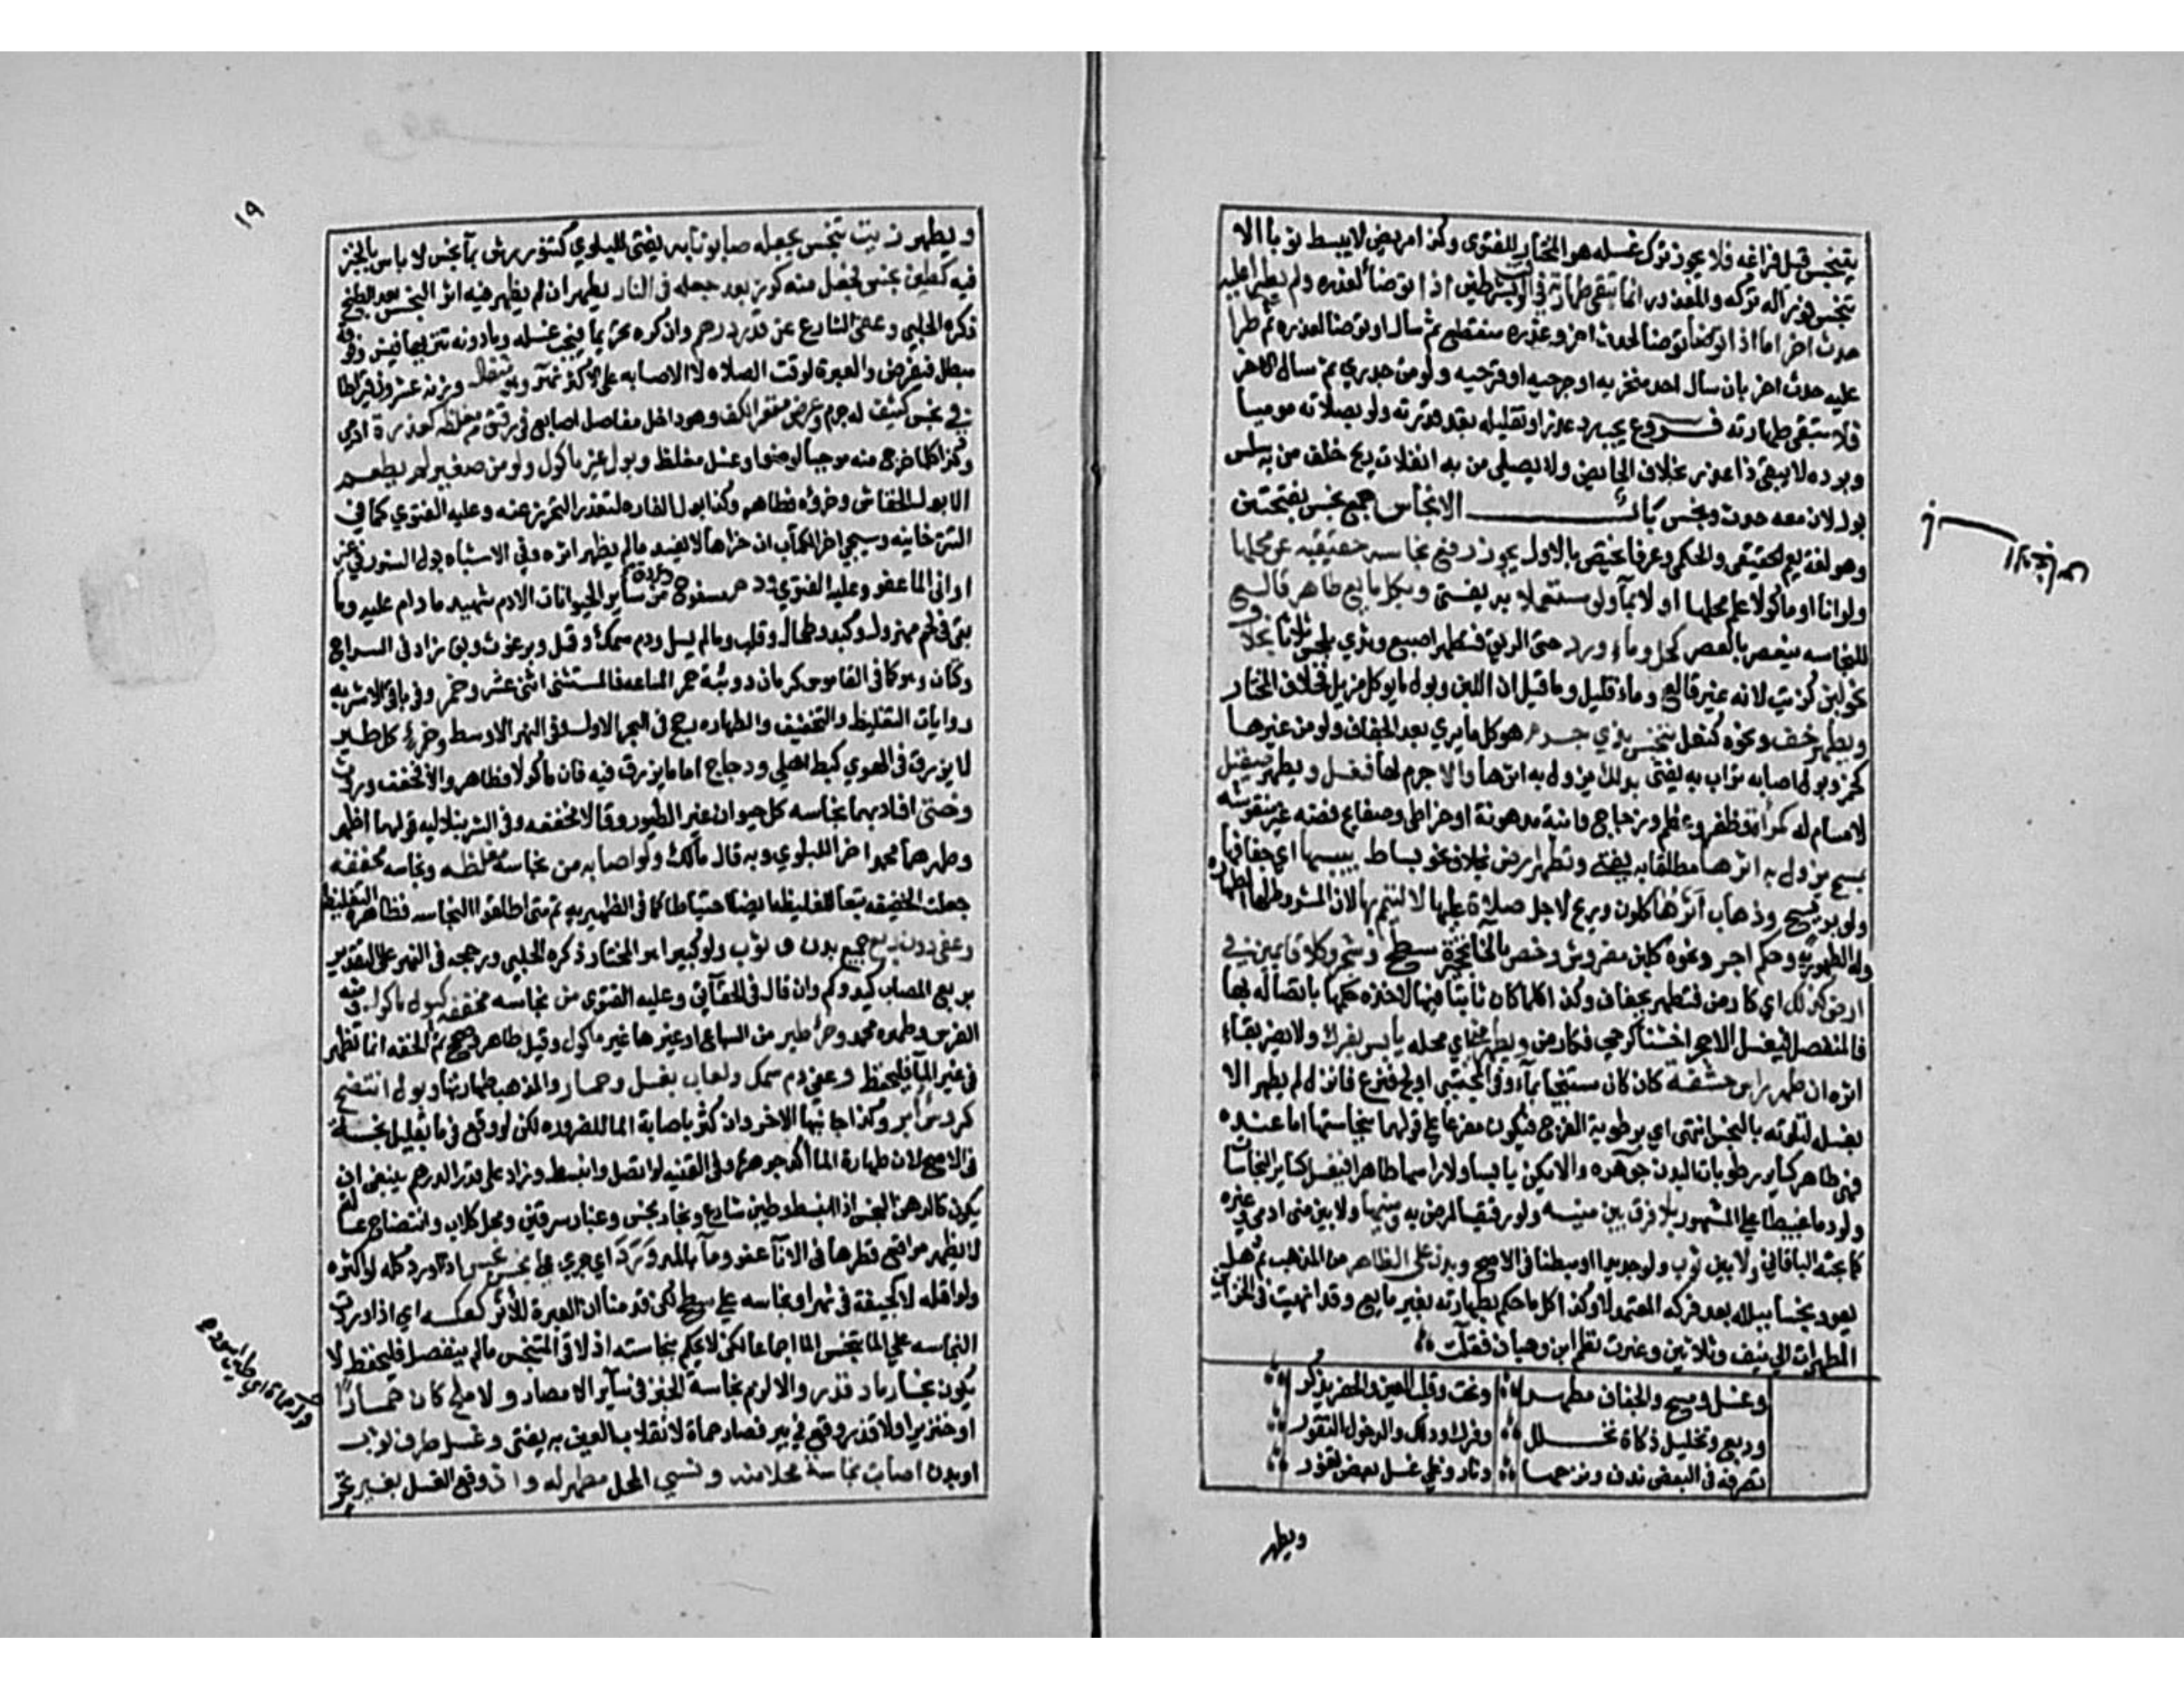 يتنجس قبل فراغه فلا يجوز ترك غسله هو المختار للفتوى وكذا مريض لا يبسط ثوبا الا
تنجس فورا له تركه والمعذور انما تبقى طهارته في الوقت بشرطين اذا توضأ لعذره ولم يطرا عليه
حدث اخر اما اذا توضأ لحدث اخر وعذره منقطع ثم سال او توضأ لعذره ثم طرا
عليه حدث اخر بان سال احد منخريه او جرحيه او قرحتيه ولو من جدري ثم سال الاخر
فلا تبقى طهارته فروع يجب رد عذره او تقليله بقدر قدرته ولو بصلاته موميا
وبرده لا يبقى ذا عذر بخلاف الحائض ولا يصلي من به انفلات ريح خلف من به سلس
بول لان معه حدث ونجس باب الانجاس جمع نجس بفتحتين
وهو لغة يعم الحقيقي والحكمي وعرفا يختص بالاول يجوز رفع نجاسه حقيقيه عن محلها
ولو انا او ماكولا علم محلها او لا بمآ ولو مستعملا به يفتى وبكل مايع طاهر قالع
للنجاسه ينعصر بالعصر كخل وماء ورد حتى الريق فتطهر اصبع وثدي بلحس ثلاثا بخلاف
نحو لبن كزيت لانه غير قالع وماء قليل وما قيل ان اللبن وبول ما يوكل مزيل فخلاف المختار
ويطهر خف ونحوه كنعل تنجس بذي جرم هو كل ما يرى بعد الجفاف ولو من غيرها
كخمر وبول اصابه تراب به يفتى بدلك يزول به اثرها والا جرم لها فيغسل ويطهر صقيل
لا مسام له كمرآة وظفر وعظم وزجاج وانية مدهونة او خراطي وصفايح فضه غير منقوشه
بمسح يزول به اثرها مطلقا به يفتى وتطهر ارض بخلاف نحو بساط بيبسها اي جفافها
ولو بريح وذهاب اثرها كلون وريح لاجل صلاة عليها لا لتيمم بها لان المشروط لها الطهارة
وله الطهوريه وحكم اجر ونحوه كلبن مفروش وخص بالخاء تحجيرة سطح وشجر وكلا قايمين في
ارض كذلك اي كارض فتطهر بجفاف وكذا كلما كان ثابتا فيها لاخذه حكمها باتصاله بها
فالمنفصل يغسل لا غير الا حجرا خشنا كرحى فكارض ويطهر مني اي محله يابس بفرك ولا يضر بقاء
اثره ان طهر راس حشفة كان كان مستنجيا بمآء وفي المجتبى اولج فنزع فانزل لم يطهر الا
بغسله لتلوثه بالنجس انتهى اي برطوبة الفرج فيكون مفرعا على قولهما بنجاستها اما عنده
فهي طاهر كساير رطوبات البدن جوهره والا يكن يابسا ولا راسها طاهرا فيغسل كساير النجاسات
ولو دما عبيطا على المشهور بلا فرق بين منيه ولو رقيقا لمرض به ومنيها ولا بين مني ادمي وغيره
كما بحثه الباقاني ولا بين ثوب ولو جديدا او مبطنا في الاصح وبدن على الظاهر من المذهب ثم هل
يعود نجسا ببلله بعد فركه المعتمد لا وكذا كل ما حكم بطهارته بغير مايع وقد انهيت في الخزائن
المطهرات الى نيف وثلاثين وغيرت نظم ابن وهبان فقلت
وغسل ومسح والجفاف مطهر ونحت وقلب العين والحفر يذكر
ودبغ وتخليل ذكاة تخلل وفرك ودلك والدخول التغور
تصرفه في البعض ندف ونزحها ونار وغلي غسل بعض تقور
ويطهر
١٩
ويطهر زيت تنجس بجعله صابونا به يفتى للبلوي كتنور رش بمآ نجس لا باس بالخبز
فيه كطين نجس فجعل منه كوز بعد جعله في النار يطهر ان لم يظهر فيه اثر النجس بعد الطبخ
ذكره الحلبي وعفى الشارع عن قدر درهم وان كره تحريما فيجب غسله وما دونه تنزيها فيسن وفوقه
مبطل فيفرض والعبرة لوقت الصلاه لا الاصابه على الاكثر نهر وهو مثقال وزنه عشرون قيراطا
في نجس كثيف له جرم وعرض مقعر الكف وهو داخل مفاصل اصابع في رقيق مغلظه كعذرة ادمي
وكذا كلما خرج منه موجبا لوضوا وغسل مغلظ وبول غير ماكول ولو من صغير لم يطعم
الا بول الخفاش وخرؤه فطاهر وكذا بول الفاره لتعذر التحرز عنه وعليه الفتوي كما في
التترخانيه وسيجي اخر الكتاب ان خراها لا يفسد مالم يظهر اثره وفي الاشباه بول السنور في غير
اواني الما عفو وعليه الفتوي ودم مسفوح من ساير الحيوانات الا دم شهيد ما دام عليه وما
بقي في لحم مهزول وكبد وطحال وقلب ومالم يسل ودم سمك وقمل وبرغوث وبق زاد في السراج
وكتان وهو كما في القاموس كرمان دويبة حمرا لساعه فالمستثنى اثنى عشر وخمر وفي باقي الاشربه
روايات التغليظ والتخفيف والطهاره رجح في البحر الاول وفي النهر الاوسط وخرء كل طير
لا يزرق في الهوي كبط اهلي ودجاج اما ما يزرق فيه فان ماكولا فطاهر والا فمخفف وروث
وخثى افاد بهما نجاسه كل حيوان غير الطيور وقالا مخففه وفي الشرنبلاليه قولهما اظهر
وطهرهما محمد اخرا للبلوي وبه قال مالك ولو اصابه من نجاسة مغلظه ونجاسه مخففه
جعلت الخفيفه تبعا للغليظه ايضا احتياطا كما في الظهيريه ثم متى اطلقوا النجاسه فظاهره التغليظ
وعفي دون ربع جميع بدن و ثوب ولو كبيرا هو المختار ذكره الحلبي ورجحه في النهر على التقدير
بربع المصاب كيد وكم وان قال في الحقائق وعليه الفتوى من نجاسه مخففه كبول ماكول ومنه
الفرس وطهره محمد وخرء طير من السباع او غيرها غير ماكول وقيل طاهر وصحح ثم الخفه انما تظهر
في غير المآ فليحفظ وعفي دم سمك ولعاب بغل وحمار والمذهب طهارتها وبول انتضح
كروس ابر وكذا جانبها الاخر وان كثر باصابة الما للضروره لكن لو وقع في ما قليل نجسه
في الاصح لان طهارة الما اكد جوهره وفي القنيه لو اتصل وانبسط وزاد على قدر الدرهم ينبغي ان
يكون كالدهن النجس اذا انبسط وطين شارع وبخار نجس وغبار سرقين ومحل كلاب وانتضاح غساله
لا يظهر مواقع قطرها في الانآ عفو ومآ بالمد ورد اي جري على نجس نجس اذا ورد كله او اكثره
ولو اقله لا كجيفة في نهر او نجاسه على سطح لكن قدمنا ان العبرة للاثر كعكسه اي اذا وردت
النجاسه على الما تنجس الما اجماعا لكن لا يحكم بنجاسته اذا لاقى المتنجس مالم ينفصل فليحفظ لا
يكون نجسا رماد قذر والا لزم نجاسة الخبز في سآير الامصار ولا ملح كان حمارا
او خنزيرا ولا قذر وقع في بير فصار حماة لانقلاب العين به يفتى وغسل طرف ثوب
او بدن اصابت نجاسة محلا منه ونسي المحل مطهر له وان وقع الغسل بغير تحر